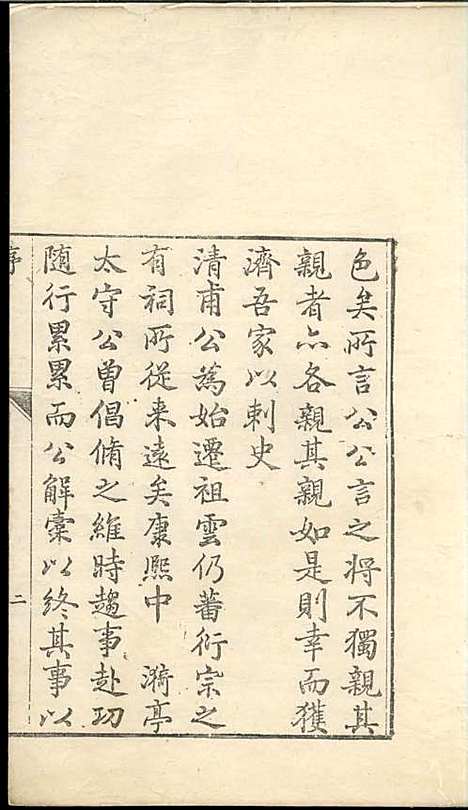 色矣所言公公言之将不獨親其
親者亦各親其親如是則幸而獲
濟吾家以刺史
清甫公為始遷祖雲仍蕃衍宗之
有祠所從来遠矣康熙中　漪亭
太守公曾倡脩之維時趨事赴功
随行累累而公解橐以終其事以
序
二